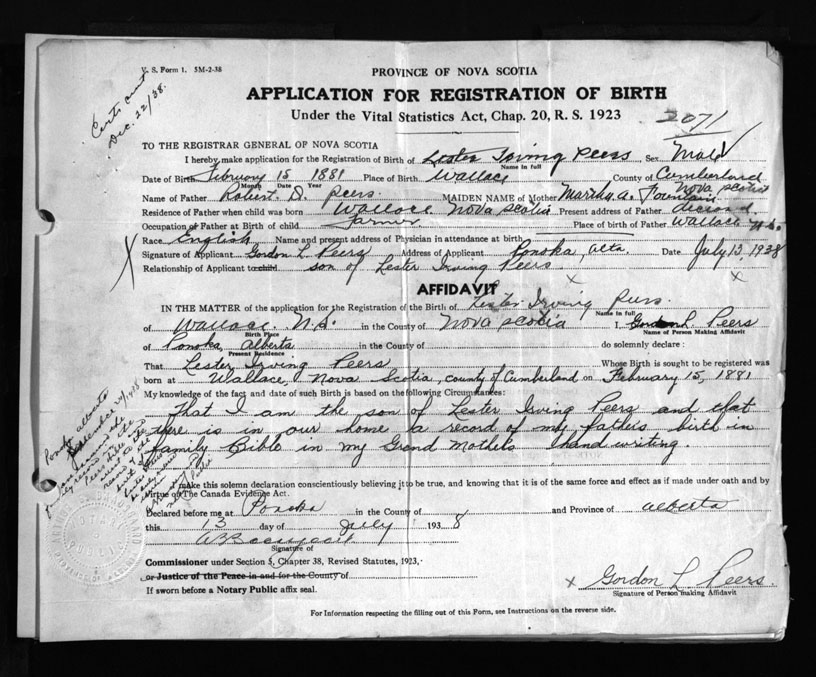 V. S. Form 1. 5M-2-38
PROVINCE OF NOVA SCOTIA
APPLICATION FOR REGISTRATION OF BIRTH
Under the Vital Statistics Act, Chap. 20, R. S. 1923
2071
Dec. 22/38.
TO THE REGISTRAR GENERAL OF NOVA SCOTIA
I hereby make application for the Registration of Birth of Lester Irving Peers Sex Male
Name in full
Date of Birth February 15 1881 Place of Birth Wallace County of Cumberland
Month Date Year
Nova Scotia
Name of Father Robert D. Peers. MAIDEN NAME of Mother Martha A. Fountain
Residence of Father when child was born Wallace Nova Scotia Present address of Father
Occupation of Father at Birth of child Farmer Place of birth of Father Wallace N.S.
Race English Name and present address of Physician in attendance at birth
Signature of Applicant Gordon L Peers Address of Applicant Ponoka, Alta. Date July 13, 1938
Relationship of Applicant to child son of Lester Irving Peers.
AFFIDAVIT
IN THE MATTER of the application for the Registration of the Birth of Lester Irving Peers.
Name in full
of Wallace. N.S. in the County of Nova Scotia I, Gordon L. Peers
Birth Place Name of Person Making Affidavit
of Ponoka, Alberta in the County of do solemnly declare:
Present Residence
That Lester Irving Peers Whose Birth is sought to be registered was
born at Wallace, Nova Scotia, county of Cumberland on February 15, 1881
My knowledge of the fact and date of such Birth is based on the following Circumstances:
That I am the son of Lester Irving Peers and that
there is in our home a record of my fathers birth in
family Bible in my Grand Mothers hand writing.
make this solemn declaration conscientiously believing it to be true, and knowing that it is of the same force and effect as if made under oath and by
Virtue of The Canada Evidence Act.
Declared before me at Ponoka in the County of and Province of Alberta
this 13 day of July 1938
Signature of
Commissioner under Section 5, Chapter 38, Revised Statutes, 1923,
or Justice of the Peace in and for the County of
If sworn before a Notary Public affix seal.
x Gordon L Peers.
Signature of Person making Affidavit
For Information respecting the filling out of this Form, see Instructions on the reverse side.